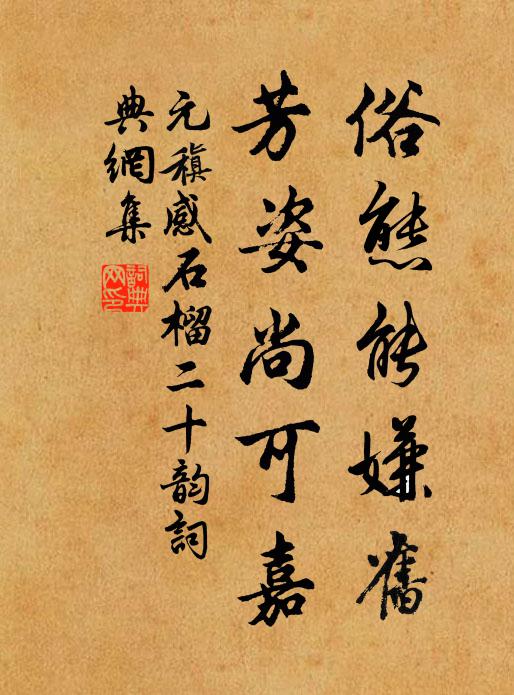 俗態能嫌舊
芳姿尚可嘉
元稹感石榴二十韵詞
典網集
詞典
网印